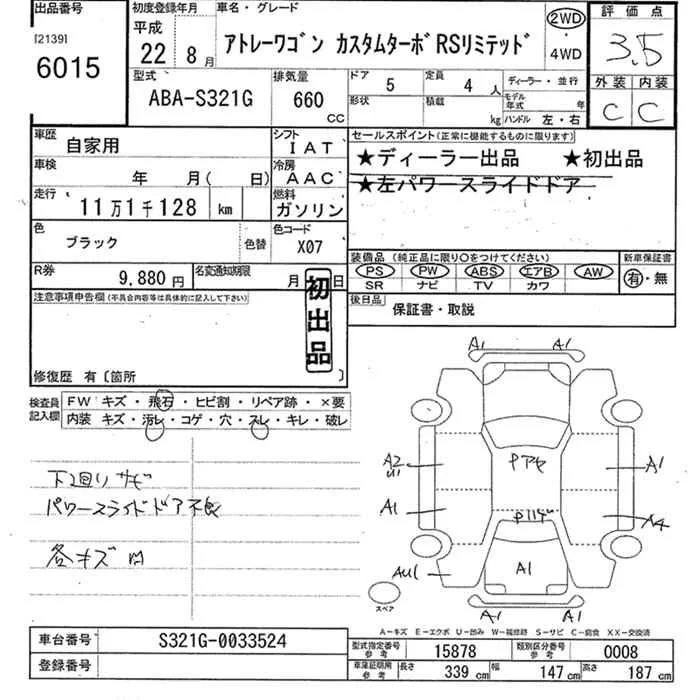 出品番号
[2139]
6015
初度登録年月
平成
22 8月
車名・グレード
アトレーワゴン カスタムターボRSリミテッド
2WD
・
4WD
評価点
3.5
外装 内装
C C
型式
ABA-S321G
排気量
660
CC
ドア
5
定員
4 人
ディーラー・並行
形状
積載
kg
モデル年式 年
ハンドル 左・右
車歴
自家用
シフト
IAT
車検
年 月( 日)
冷房
AAC
走行
11万1千128 km
燃料
ガソリン
色
ブラック
色替
色コード
X07
R券
9,880円
名変通知期限
月 日
初出品
セールスポイント(正常に機能するものに限ります)
★ディーラー出品 ★初出品
★左パワースライドドア
装備品(純正品に限り○をつけてください)
PS PW ABS エアB AW
SR ナビ TV カワ
新車保証書
有・無
後日品
保証書・取説
注意事項申告欄(不具合内容等は具体的に記入して下さい)
修復歴 有〔箇所 〕
検査員記入欄
FW キズ・飛石・ヒビ割・リペア跡・×要
内装 キズ・汚レ・コゲ・穴・スレ・キレ・破レ
下回りサビ
パワースライドドア不良
各キズ凹
A1 A1
A2
U1
A1
AU1
Pアセ
P11ゲ
A1
A1
A4
A1 A1
スペア
A-キズ E-エクボ U-凹み W-補修跡 S-サビ C-腐食 XX-交換済
車台番号
S321G-0033524
登録番号
型式指定番号
参考
15878
類別区分番号
参考
0008
車庫証明用
参考
長さ
339 cm
幅
147 cm
高さ
187 cm